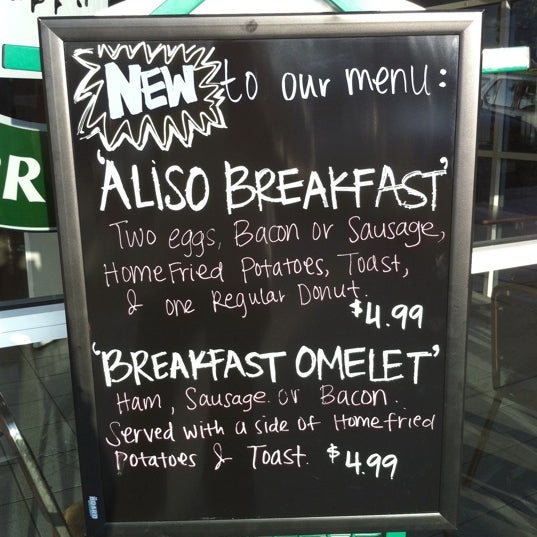 NEW to our menu:
'ALISO BREAKFAST'
Two eggs, Bacon or Sausage,
Home Fried Potatoes, Toast,
& one Regular Donut.
$4.99
'BREAKFAST OMELET'
Ham, Sausage or Bacon.
Served with a side of Homefried
Potatoes & Toast. $4.99
R